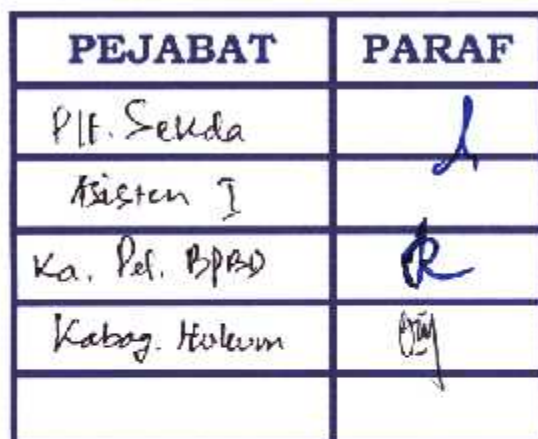 PEJABAT PARAF
Plt. Sekda
Asisten I
Ka. Pel. BPBD
Kabag. Hukum